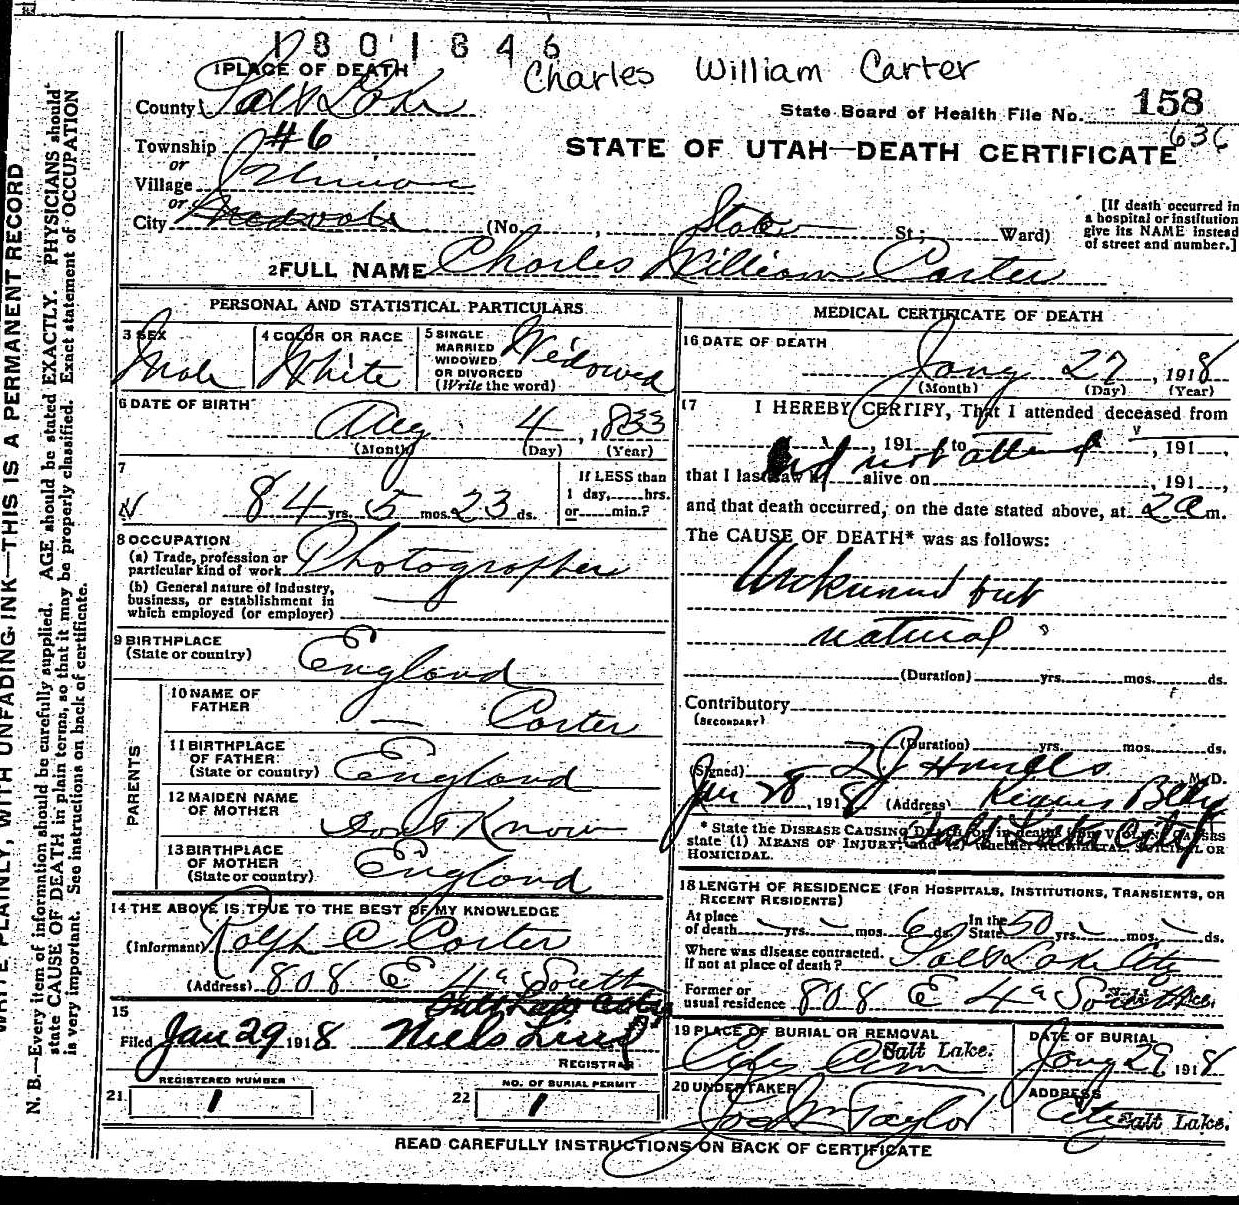 1801846
Charles William Carter
1 PLACE OF DEATH
County Salt Lake
State Board of Health File No. 158
636
Township #6
or
STATE OF UTAH—DEATH CERTIFICATE
Village
or
City
(No. , State St.; Ward)
[If death occurred in
a hospital or institution
give its NAME instead
of street and number.]
2 FULL NAME Charles William Carter
PERSONAL AND STATISTICAL PARTICULARS
3 SEX
Male
4 COLOR OR RACE
White
5 SINGLE
MARRIED
WIDOWED
OR DIVORCED
(Write the word)
Widowed
6 DATE OF BIRTH
Aug 4, 1833
(Month) (Day) (Year)
7
84 yrs. 5 mos. 23 ds.
If LESS than
1 day, hrs.
or min.?
8 OCCUPATION
(a) Trade, profession or
particular kind of work Photographer
(b) General nature of industry,
business, or establishment in
which employed (or employer)
9 BIRTHPLACE
(State or country) England
PARENTS
10 NAME OF
FATHER — Carter
11 BIRTHPLACE
OF FATHER
(State or country) England
12 MAIDEN NAME
OF MOTHER Dont Know
13 BIRTHPLACE
OF MOTHER
(State or country) England
14 THE ABOVE IS TRUE TO THE BEST OF MY KNOWLEDGE
(Informant) Ralph C Carter
(Address) 808 E 4th South
Salt Lake City
15
Filed Jan 29 1918 Niels Lind
REGISTRAR
REGISTERED NUMBER
21. 1
NO. OF BURIAL PERMIT
22 1
MEDICAL CERTIFICATE OF DEATH
16 DATE OF DEATH
Jany 27, 1918
(Month) (Day) (Year)
17 I HEREBY CERTIFY, That I attended deceased from
, 191 to , 191 ,
did not attend
that I last saw h alive on , 191 ,
and that death occurred, on the date stated above, at 2 a m.
The CAUSE OF DEATH* was as follows:
Unknown but
natural
(Duration) yrs. mos. ds.
Contributory
(SECONDARY)
(Duration) yrs. mos. ds.
(Signed) M. D.
Jan 28, 1918 (Address) Kearns Bldg
Salt Lake City
* State the DISEASE CAUSING DEATH, or in deaths from VIOLENT CAUSES
state (1) MEANS OF INJURY; and (2) whether ACCIDENTAL, SUICIDAL OR
HOMICIDAL.
18 LENGTH OF RESIDENCE (FOR HOSPITALS, INSTITUTIONS, TRANSIENTS, OR
RECENT RESIDENTS)
At place
of death yrs. mos. 6 ds.
In the
State 50 yrs. mos. ds.
Where was disease contracted,
If not at place of death? Salt Lake City
Former or
usual residence 808 E 4th South Salt Lake.
19 PLACE OF BURIAL OR REMOVAL
City Cem Salt Lake.
DATE OF BURIAL
Jany 29 1918
20 UNDERTAKER
Jos Wm Taylor
ADDRESS
City Salt Lake.
READ CAREFULLY INSTRUCTIONS ON BACK OF CERTIFICATE
WRITE PLAINLY, WITH UNFADING INK—THIS IS A PERMANENT RECORD
N. B.—Every item of information should be carefully supplied. AGE should be stated EXACTLY. PHYSICIANS should
state CAUSE OF DEATH in plain terms, so that it may be properly classified. Exact statement of OCCUPATION
is very important. See instructions on back of certificate.